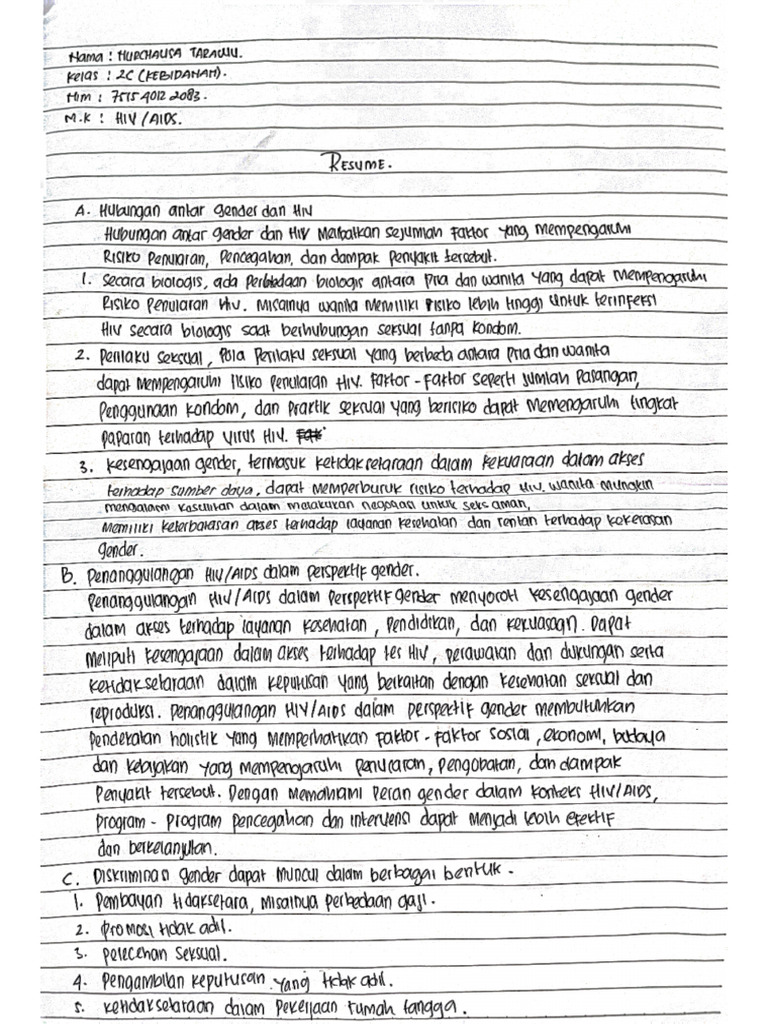 Nama : NURCHALISA TARAWU.
Kelas : 2C (KEBIDANAN).
Nim : 751540122083.
M.K : HIV/AIDS.
RESUME.
A. Hubungan antar gender dan HIV
Hubungan antar gender dan HIV Melibatkan sejumlah Faktor yang mempengaruhi
Risiko Penularan, Pencegahan, dan dampak Penyakit tersebut.
1. Secara biologis, ada Perbedaan biologis antara Pria dan wanita yang dapat mempengaruhi
Risiko Penularan HIV. Misalnya wanita Memiliki Risiko lebih tinggi untuk terinfeksi
HIV secara biologis saat berhubungan seksual tanpa kondom.
2. Perilaku seksual, Pola Perilaku seksual yang berbeda antara Pria dan wanita
dapat Mempengaruhi risiko Penularan HIV. Faktor-Faktor seperti Jumlah Pasangan,
Penggunaan kondom, dan Praktik seksual yang berisiko dapat Memengaruhi tingkat
Paparan terhadap virus HIV.
3. Kesengajaan gender, termasuk ketidaksetaraan dalam kekuasaan dalam akses
terhadap sumber daya, dapat memperburuk risiko terhadap HIV. wanita mungkin
mengalami kesulitan dalam melakukan negosiasi untuk seks aman,
Memiliki keterbatasan akses terhadap layanan kesehatan dan rentan terhadap kekerasan
gender.
B. Penanggulangan HIV/AIDS dalam perspektif gender.
Penanggulangan HIV/AIDS dalam Perspektif gender menyoroti kesengajaan gender
dalam akses terhadap layanan kesehatan, Pendidikan, dan kekuasaan. Dapat
Meliputi kesengajaan dalam akses terhadap tes HIV, perawatan dan dukungan serta
ketidaksetaraan dalam keputusan yang berkaitan dengan kesehatan seksual dan
reproduksi. Penanggulangan HIV/AIDS dalam perspektif gender membutuhkan
Pendekatan holistik yang memperhatikan Faktor-Faktor sosial, ekonomi, budaya
dan kebijakan yang mempengaruhi penularan, pengobatan, dan dampak
Penyakit tersebut. Dengan memahami Peran gender dalam konteks HIV/AIDS,
Program-Program pencegahan dan intervensi dapat Menjadi lebih efektif
dan berkelanjutan.
C. Diskriminasi gender dapat muncul dalam berbagai bentuk.
1. Pembayan tidak setara, misalnya perbedaan gaji.
2. Promosi tidak adil.
3. Pelecehan seksual.
4. Pengambilan keputusan yang tidak adil.
5. ketidaksetaraan dalam pekerjaan rumah tangga.